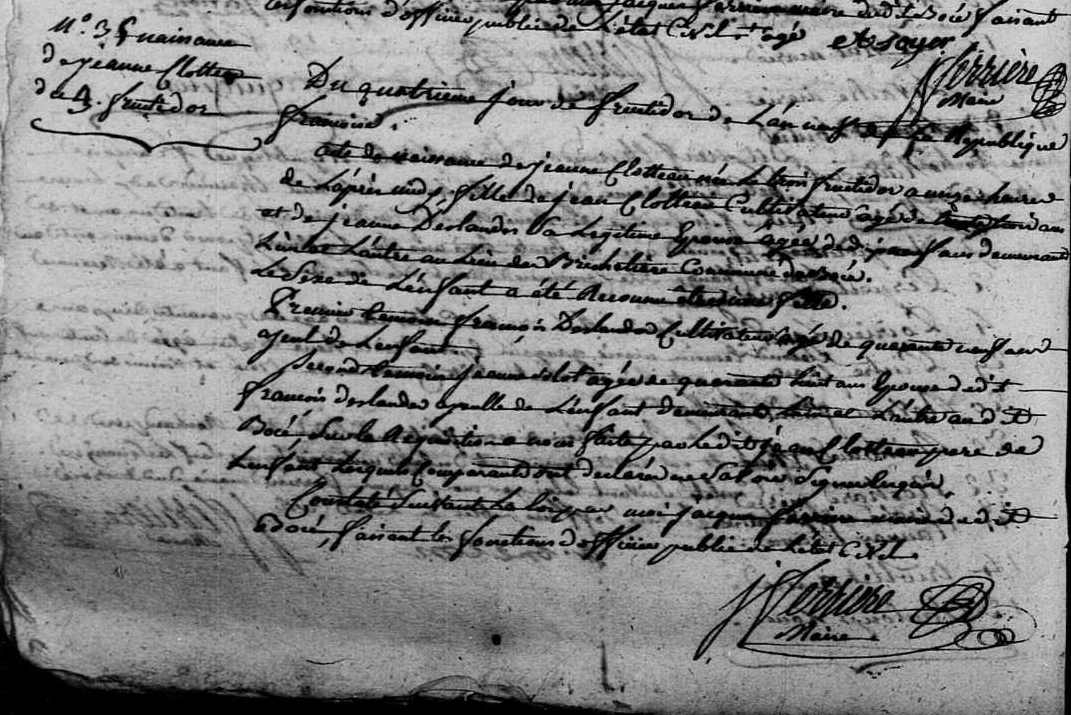 les fonctions d'officier public de L'état Civil
et soyer
JFerrière
Maire
N.º 35 naissance
de jeanne Clotteau
du 3. fructidor
Du quatrieme jour de fructidor de L'an de La Republique
francoise.
acte de naissance de jeanne Clotteau née Le trois fructidor a onze heures
de L'après midy, fille de jean Clotteau Cultivateur agé de ans
et de jeanne Deslandes Sa Legitime Epouse agée de ans demeurants
L'un et L'autre au Lieu de La Commune de Bocé.
Le Sexe de L'enfant a été Reconnu être fille.
Premier temoin françois Deslandes Cultivateur agé de quarante neuf ans
ayeul de L'enfant.
Second temoin jeanne agée de quarante huit ans Epouse dudit
françois deslandes ayeulle de L'enfant demeurants L'un et L'autre audit
Bocé, Sur la Requisition a nous faite par Le dit jean Clotteau pere de
L'enfant Lesquels Comparants ont declaré ne Savoir Signer Enquis,
Constaté Suivant La Loi par moi jacques ferriere maire dudit
Bocé, faisant les fonctions d'officier public de L'état Civil.
JFerriere
Maire